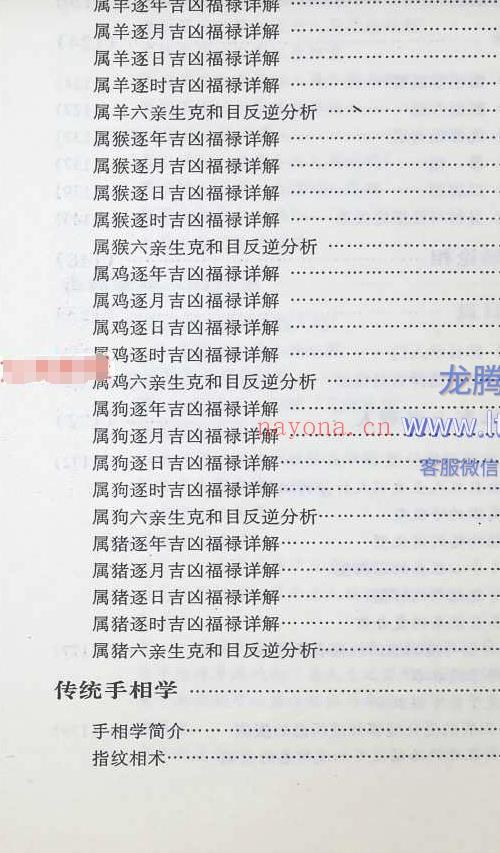 属羊逐年吉凶福禄详解
属羊逐月吉凶福禄详解
属羊逐日吉凶福禄详解
属羊逐时吉凶福禄详解
属羊六亲生克和目反逆分析
属猴逐年吉凶福禄详解
属猴逐月吉凶福禄详解
属猴逐日吉凶福禄详解
属猴逐时吉凶福禄详解
属猴六亲生克和目反逆分析
属鸡逐年吉凶福禄详解
属鸡逐月吉凶福禄详解
属鸡逐日吉凶福禄详解
属鸡逐时吉凶福禄详解
属鸡六亲生克和目反逆分析
龙腾
属狗逐年吉凶福禄详解
nayona.cn
www.lt
属狗逐月吉凶福禄详解
属狗逐日吉凶福禄详解
客服微信
属狗逐时吉凶福禄详解
属狗六亲生克和目反逆分析
属猪逐年吉凶福禄详解
属猪逐月吉凶福禄详解
属猪逐日吉凶福禄详解
属猪逐时吉凶福禄详解
属猪六亲生克和目反逆分析
传统手相学
手相学简介
指纹相术